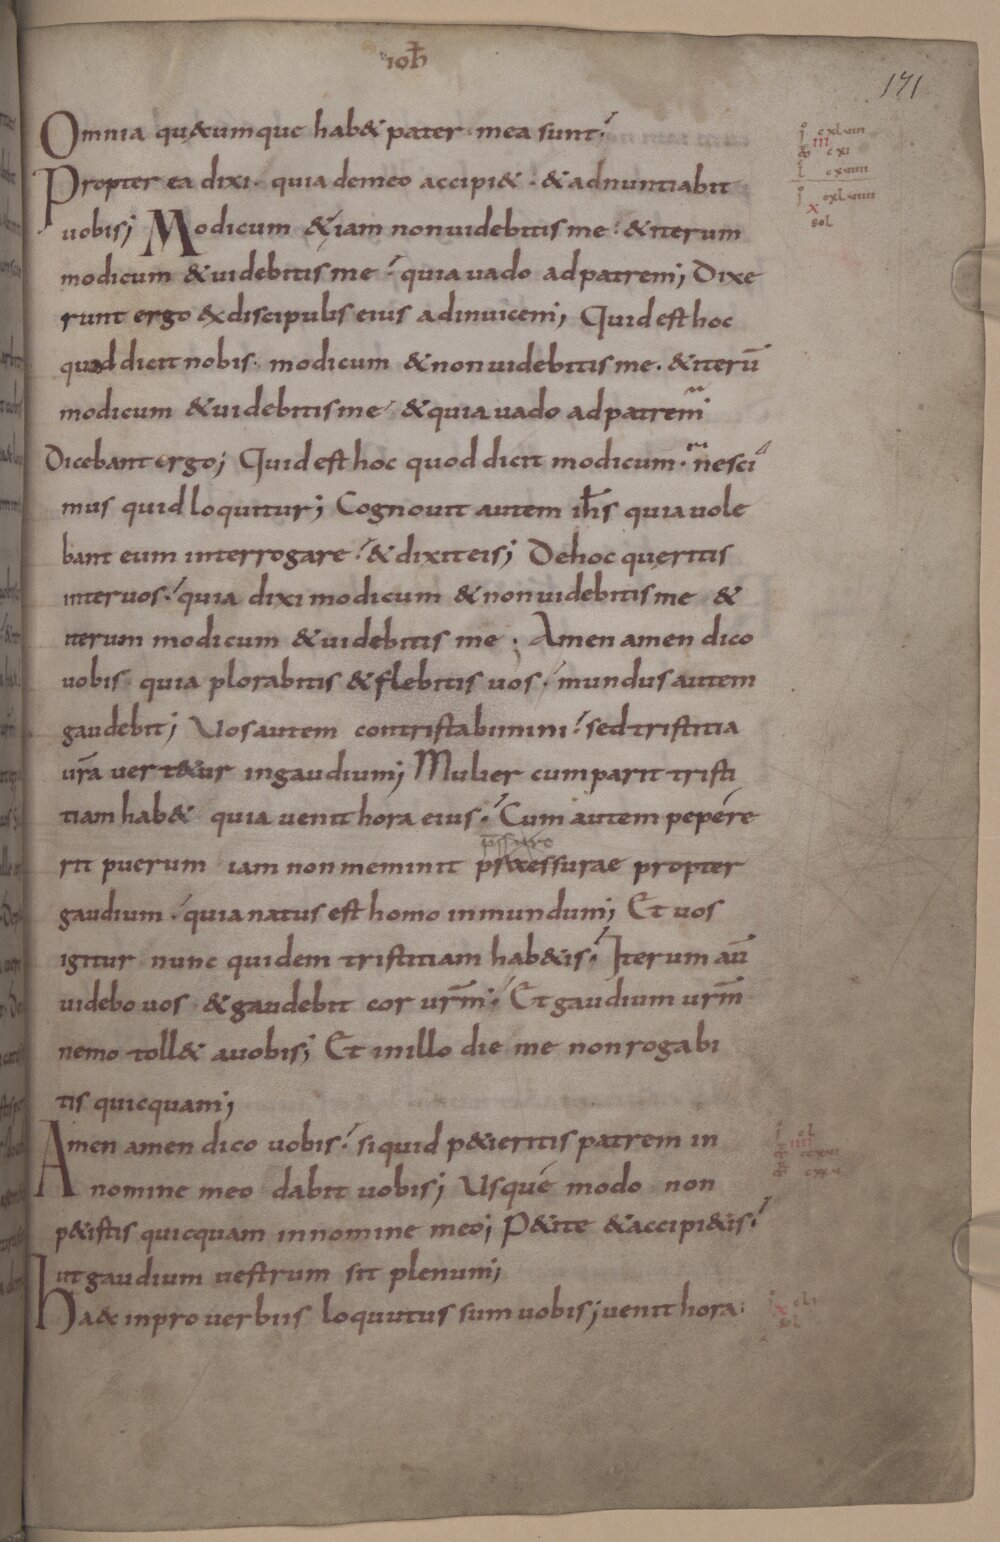 ioh̄
171
Omnia qu&umque hab& pater mea sunt.
Propter ea dixi. quia demeo accipi&. & adnuntiabit
uobis; Modicum & iam nonuidebitis me. & iterum
modicum & uidebitis me. quia uado adpatrem; Dixe
runt ergo &discipulis eius adinuicem; Quid est hoc
quod dicit nobis. modicum & nonuidebitis me. & iterū
modicum & uidebitis me & quia uado adpatrem
Dicebant ergo; Quid est hoc quod dicit modicum. nesci
mus quid loquitur; Cognouit autem ih̄s quia uole
bant eum interrogare. & dixit eis; Dehoc queritis
inter uos. quia dixi modicum & nonuidebitis me &
iterum modicum & uidebitis me; Amen amen dico
uobis quia plorabitis & flebitis uos. mundus autem
gaudebit; Uos autem contristabimini. sed tristitia
ur̄a uert&ur ingaudium; Mulier cum parit tristi
tiam hab& quia uenit hora eius. Cum autem pepere
rit puerum iam non meminit praessurae propter
gaudium. quia natus est homo inmundum; Et uos
igitur nunc quidem tristitiam hab&is. Iterum aū
uidebo uos & gaudebit cor ur̄m. Et gaudium ur̄m
nemo toll& auobis; Et inillo die me non rogabi
tis quicquam;
Amen amen dico uobis. siquid p&ieritis patrem in
nomine meo dabit uobis; Usque modo non
p&istis quicquam innomine meo; P&ite & accipi&is.
ut gaudium uestrum sit plenum;
Ha& inprouerbiis loquutus sum uobis; uenit hora